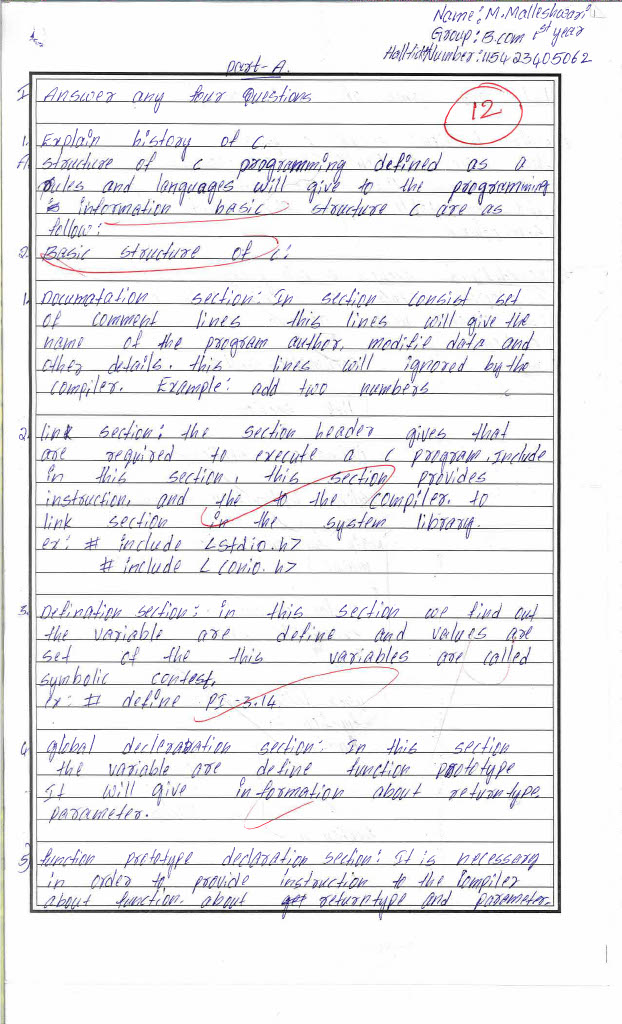 Name: M. Malleshwari
Group: B.com 1st year
Hallticket Number: 115423405062
part-A.
I Answer any four Questions
12
1. Explain history of c.
A. structure of c programming defined as a
rules and languages will give to the programming
information basic structure c are as
follow:
2. Basic structure of c:
1. Documatation section: In section consist set
of comment lines this lines will give the
name of the program author, modifie data and
other details. this lines will ignored by the
compiler. Example: add two numbers
2. link section: the section header gives that
are required to execute a c program. Include
in this section, this section provides
instruction, and the to the compiler. to
link section in the system library.
ex: # include <stdio.h>
# include <conio.h>
3. Defination section: in this section we find out
the variable are define and values are
set of the this variables are called
symbolic contest.
ex: # define PI-3.14
4. global declaration section: In this section
the variable are define function prototype
It will give information about return type
parameter.
5) function prototype declaration section: It is necessary
in order to, provide instruction to the compiler
about function. about return type and parameter.